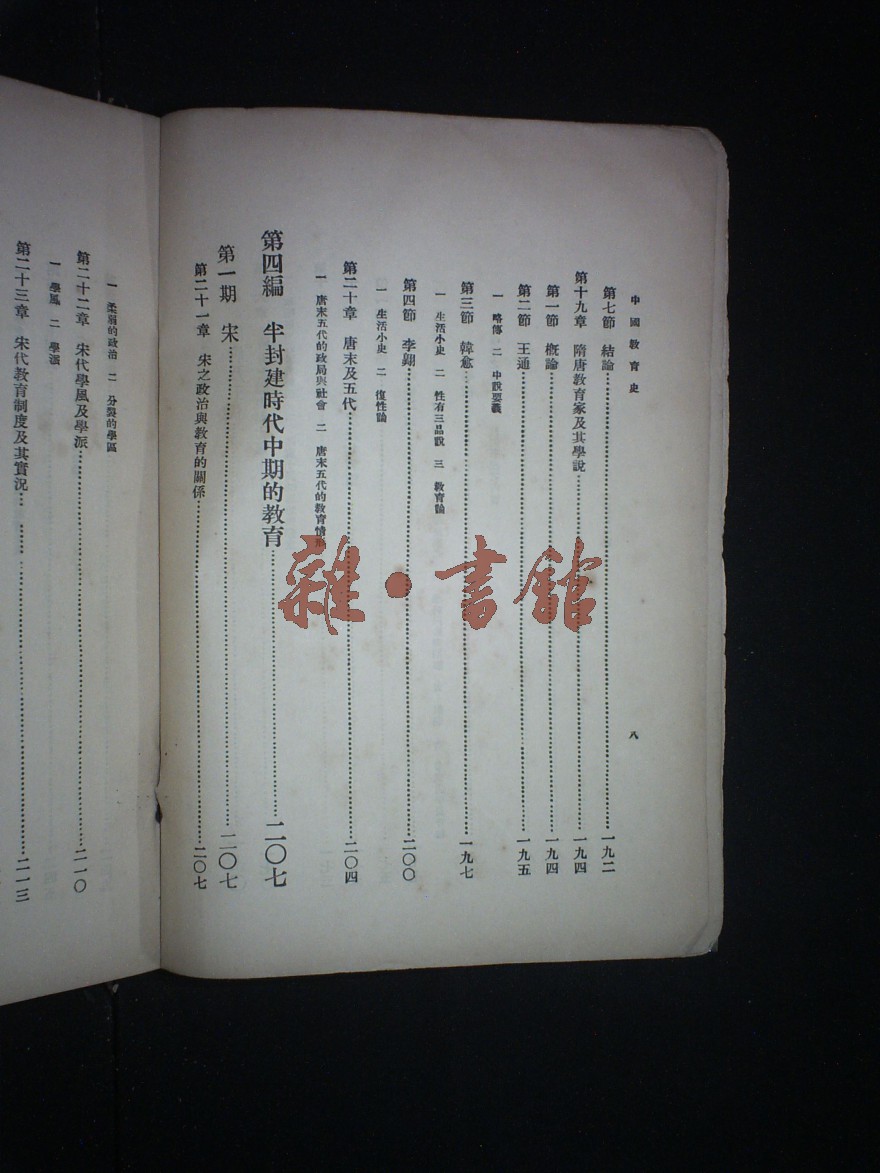 中國教育史
八
第七節 結論……一九二
第十九章 隋唐教育家及其學說……一九四
第一節 概論……一九四
第二節 王通……一九五
一 略傳 二 中說要義
第三節 韓愈……一九七
一 生活小史 二 性有三品說 三 教育論
第四節 李翺……二〇〇
一 生活小史 二 復性論
第二十章 唐末及五代……二〇四
一 唐末五代的政局與社會 二 唐末五代的教育情形
第四編 半封建時代中期的教育……二〇七
第一期 宋……二〇七
第二十一章 宋之政治與教育的關係……二〇七
一 柔弱的政治 二 分裂的學區
第二十二章 宋代學風及學派……二一〇
一 學風 二 學派
第二十三章 宋代教育制度及其實況……二一三
雜·書館